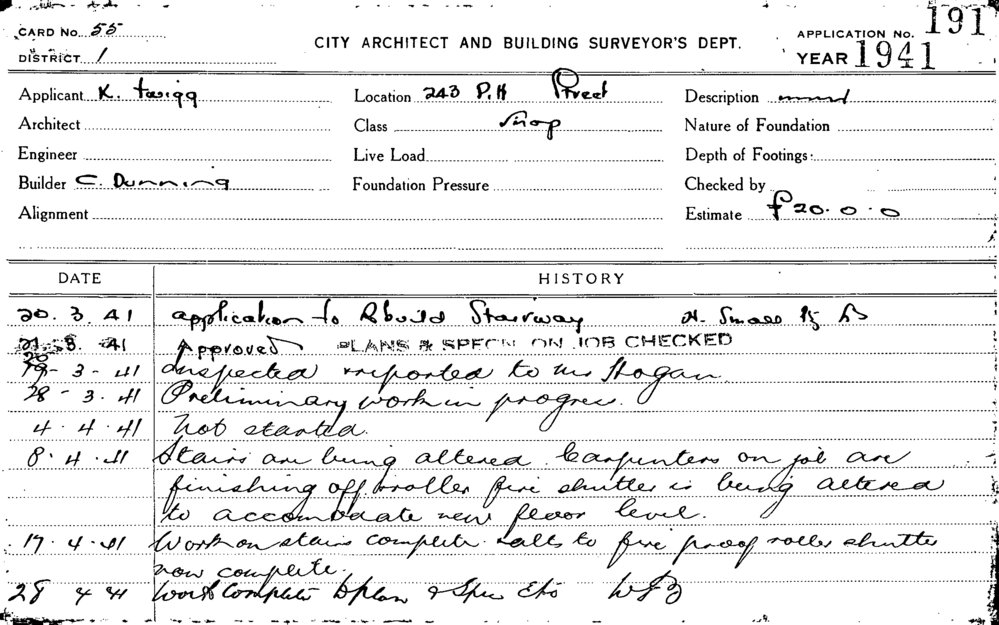 CARD No. 55
DISTRICT 1
CITY ARCHITECT AND BUILDING SURVEYOR'S DEPT.
APPLICATION No. 191
YEAR 1941
Applicant K. Twigg
Location 243 P.H Street
Description
Architect
Class Shop
Nature of Foundation
Engineer
Live Load
Depth of Footings:
Builder C. Dunning
Foundation Pressure
Checked by
Alignment
Estimate £20.0.0
DATE HISTORY
20. 3. 41 application to Rbuild Stairway
41 Approved PLANS & SPECN ON JOB CHECKED
19 - 3 - 41 Inspected & reported to Mr Hogan.
28 - 3. 41 Preliminary work in progress.
4. 4. 41 Not started.
8. 4. 41 Stairs are being altered. Carpenters on job are
finishing off. roller fire shutter is being altered
to accommodate new floor level.
17. 4. 41 Work on stairs complete. alts to fire proof roller shutter
now complete.
28 4 41 Work Complete & Spec